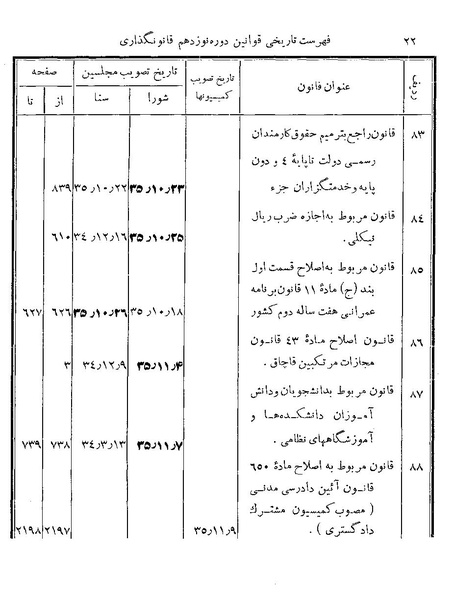 ۲۲ فهرست تاریخی قوانین دوره نوزدهم قانونگذاری
ردیف عنوان قانون تاریخ تصویب کمیسیونها تاریخ تصویب مجلسین صفحه
شورا سنا از تا
۸۳ قانون راجع بترمیم حقوق کارمندان
رسمی دولت تا پایهٔ ٤ و دون
پایه و خدمتگزاران جزء ۳۵٫۱۰٫۲۳ ۳۵٫۱۰٫۲۲ ۸۳۹
۸٤ قانون مربوط به اجازه ضرب ریال
نیکلی . ۳۵٫۱۰٫۲۵ ۳٤٫۱۲٫۱۶ ۶۱۰
۸۵ قانون مربوط به اصلاح قسمت اول
بند (ج) مادهٔ ۱۱ قانون برنامه
عمرانی هفت ساله دوم کشور ۳۵٫۱۰٫۱۸ ۳۵٫۱۰٫۲۶ ۶۲۶ ۶۲۷
۸۶ قانون اصلاح مادهٔ ٤۳ قانون
مجازات مرتکبین قاچاق . ۳۵٫۱۱٫٤ ۳٤٫۱۲٫۹ ۳
۸۷ قانون مربوط بدانشجویان ودانش
آموزان دانشکده‌ها و
آموزشگاههای نظامی . ۳۵٫۱۱٫۷ ۳٤٫۳٫۱۳ ۷۳۸ ۷۳۹
۸۸ قانون مربوط به اصلاح مادهٔ ۶۵۰
قانون آئین دادرسی مدنی
( مصوب کمیسیون مشترك
دادگستری ) . ۳۵٫۱۱٫۹ ۲۱۹۷ ۲۱۹۸